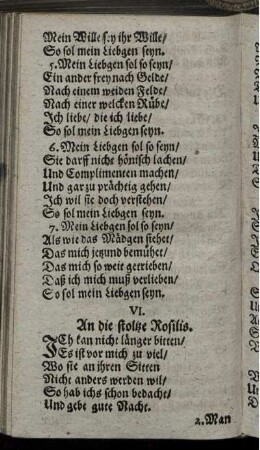 Mein Wille sey ihr Wille/
So sol mein Liebgen seyn.
5. Mein Liebgen sol so seyn/
Ein ander frey nach Gelde/
Nach einem weiden Felde/
Nach einer welcken Rübe/
Ich liebe/ die ich liebe/
So sol mein Liebgen seyn.
6. Mein Liebgen sol so seyn/
Sie darff nicht hönisch lachen/
Und Complimenten machen/
Und gar zu prächtig gehen/
Ich wil sie doch verstehen/
So sol mein Liebgen seyn.
7. Mein Liebgen sol so seyn/
Als wie das Mädgen siehet/
Das mich jetzund bemühet/
Das mich so weit getrieben/
Daß ich mich muß verlieben/
So sol mein Liebgen seyn.
VI.
An die stoltze Rosilis.
ICh kan nicht länger bitten/
Es ist vor mich zu viel/
Wo sie an ihren Sitten
Nicht anders werden wil/
So hab ichs schon bedacht/
Und gebe gute Nacht.
2. Man